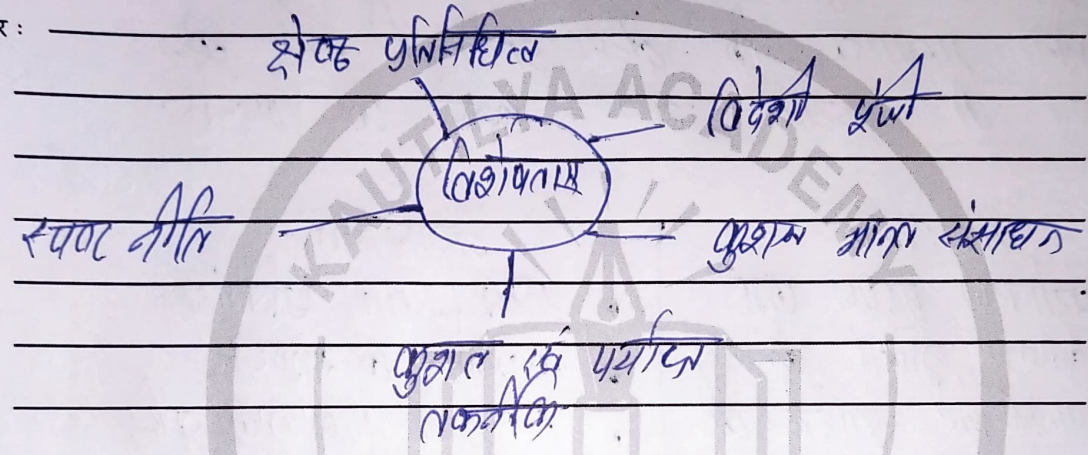 र:
श्रेष्ठ प्रतिनिधित्व
विदेशी पूंजी
विशेषताएं
स्पष्ट नीति
कुशल मानव संसाधन
कुशल एवं पर्याप्त
तकनीकि
KAUTILYA ACADEMY